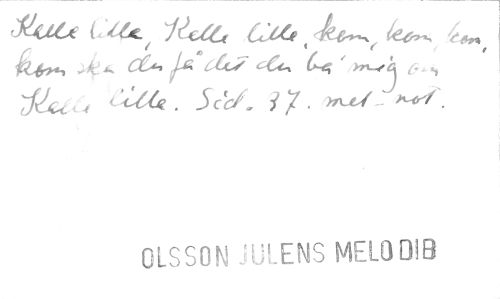 Kalle lilla, Kalle lille, kom, kom, kom,
kom ska du få det du ba' mig om
Kalle lilla. Sid. 37. mel-not.
OLSSON JULENS MELODIB